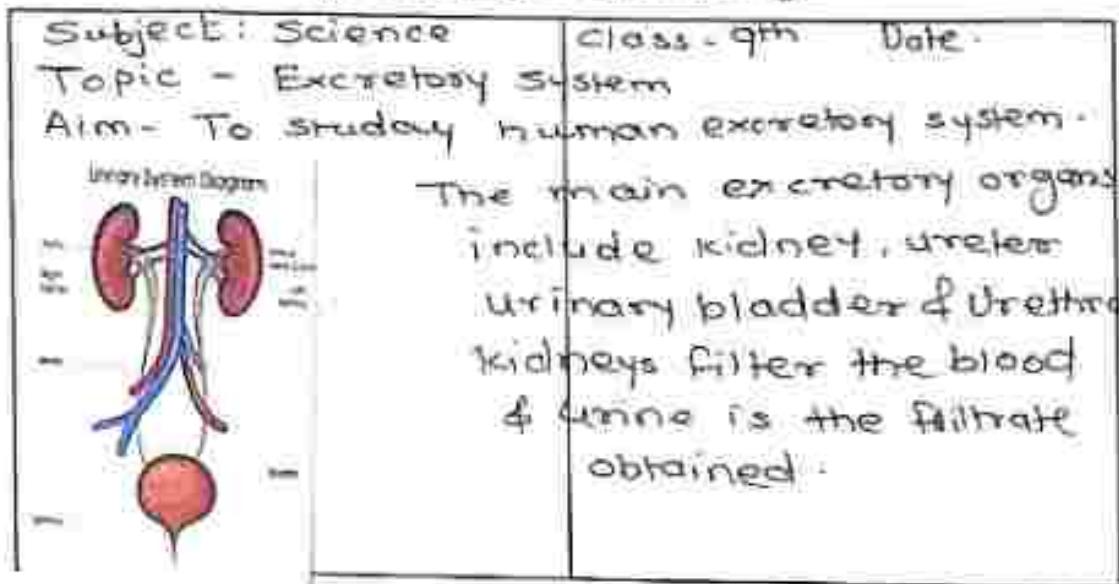 Subject: Science Class-9th Date.
Topic - Excretory system
Aim- To studay human excretory system.
Urinary System Diagram
The main excretory organs
include kidney, ureter
urinary bladder & Urethra
kidneys filter the blood
& urine is the filtrate
obtained.